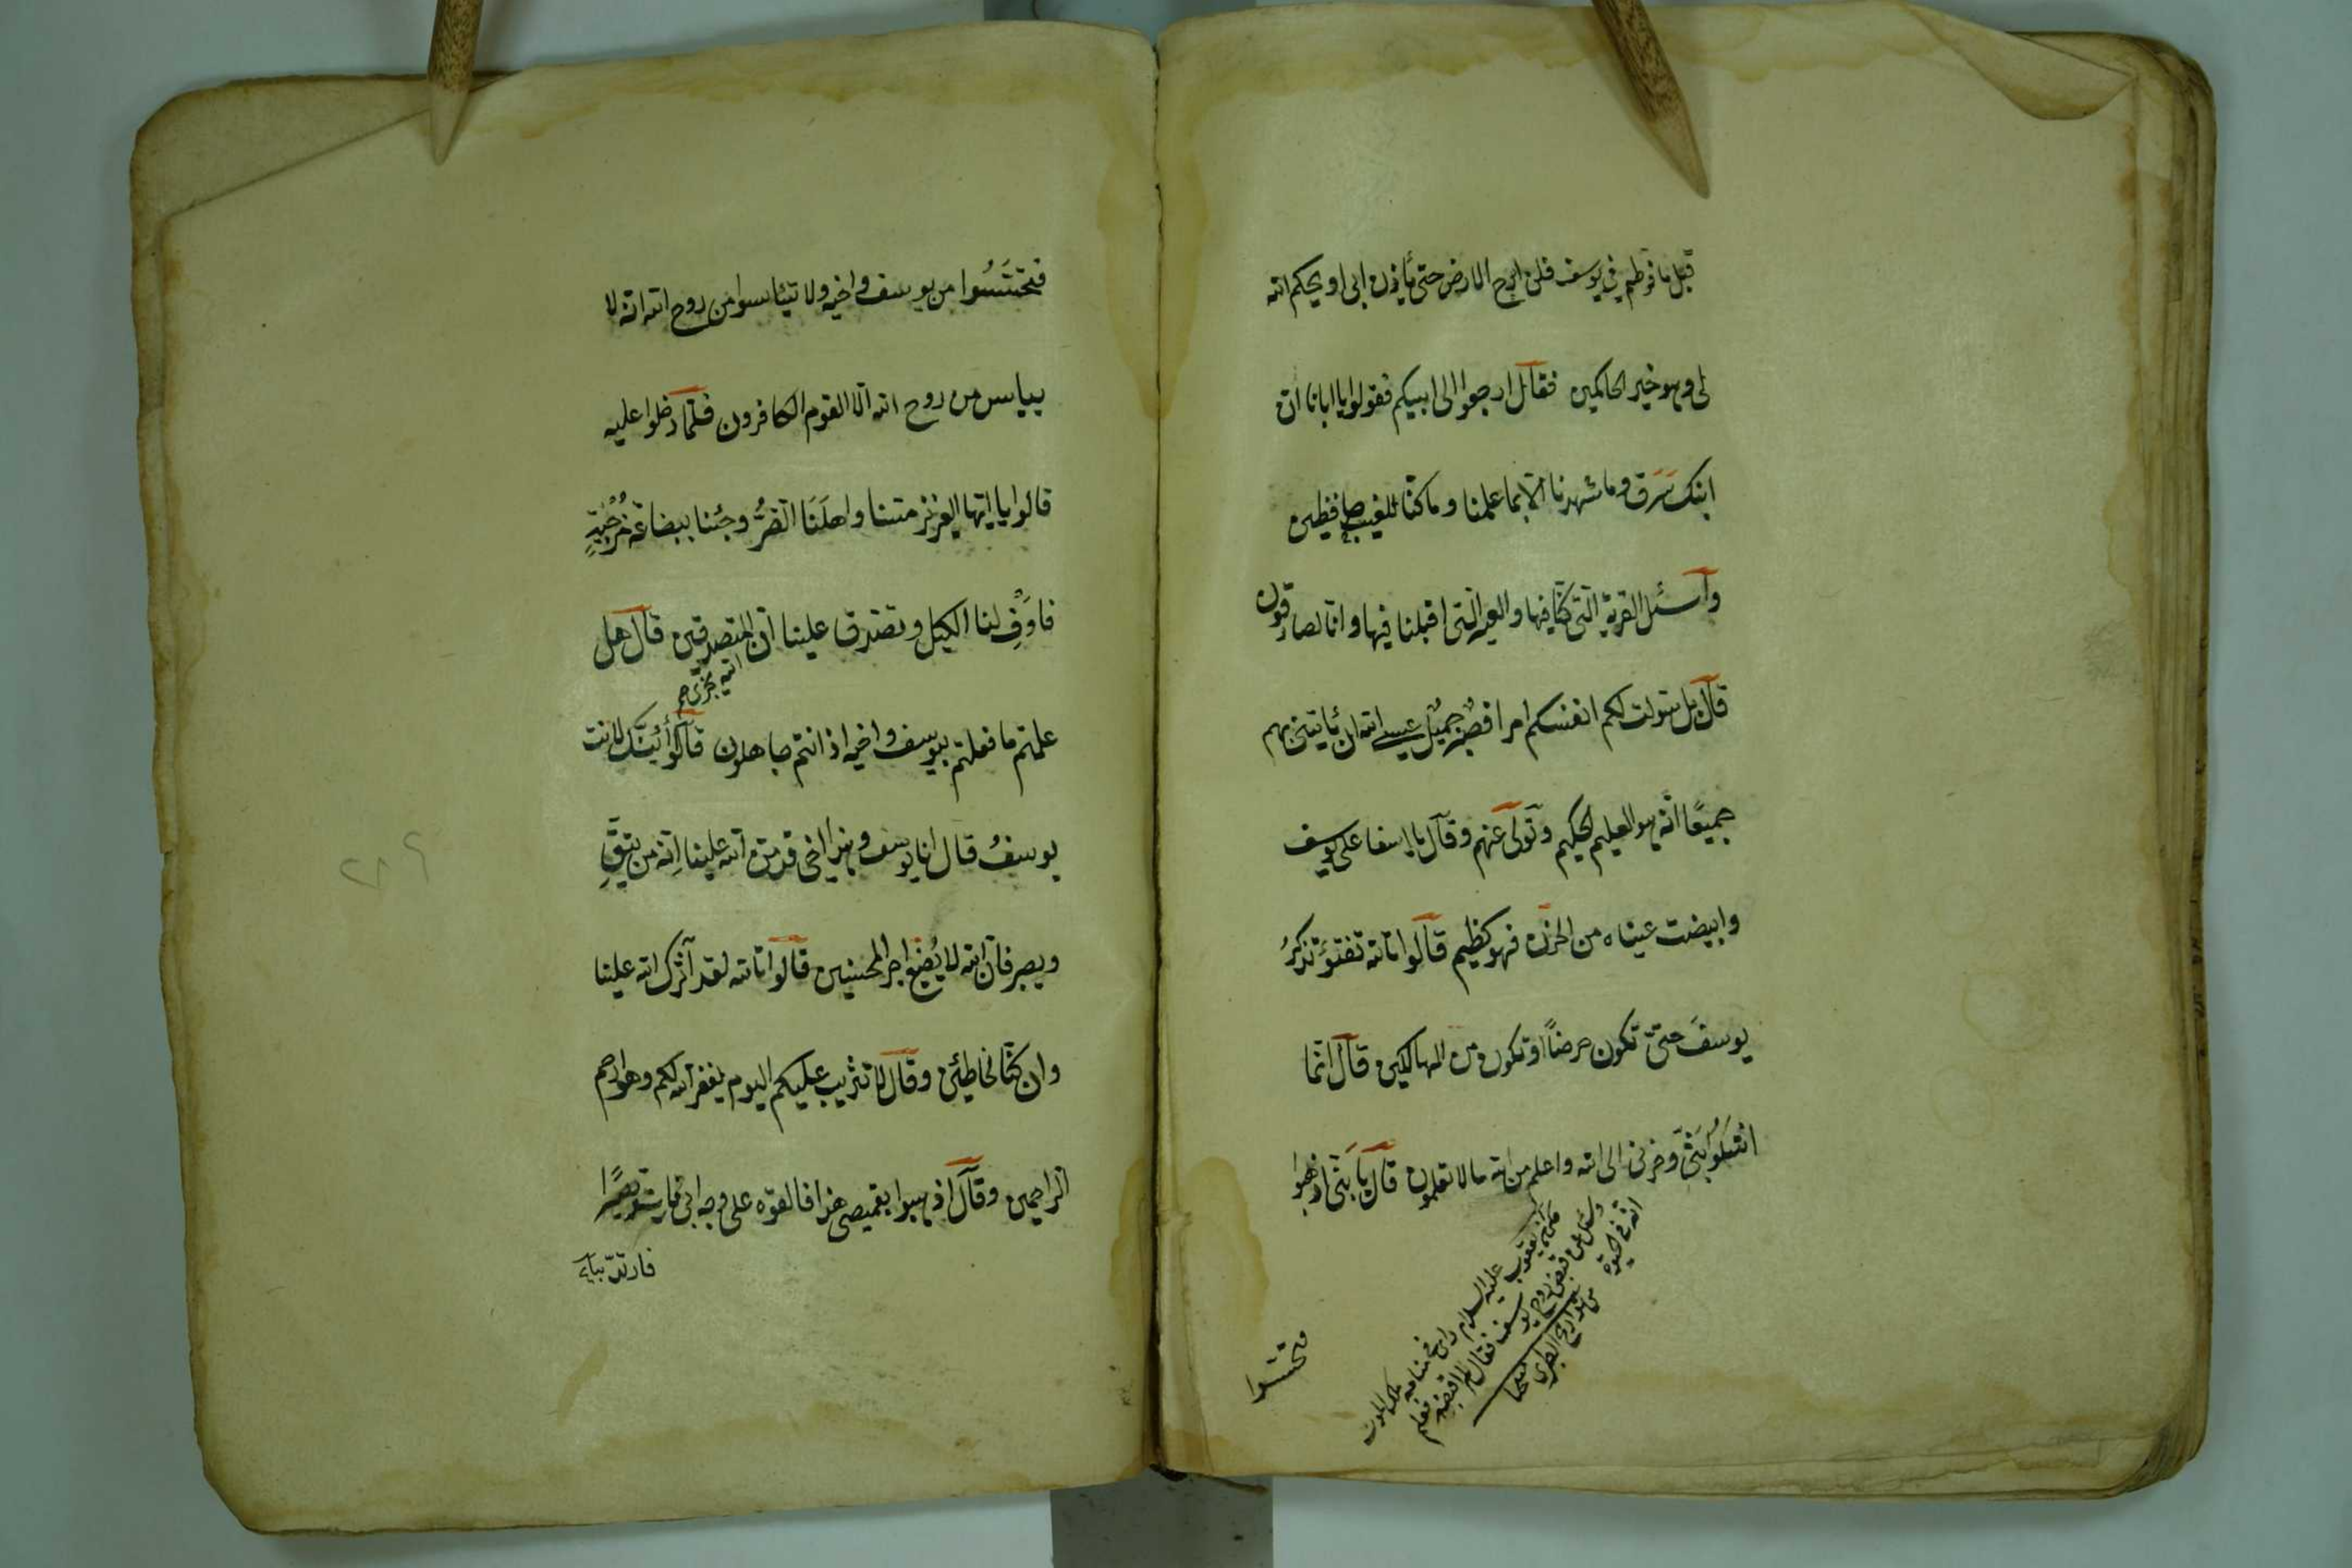 قبل ما فرطتم في يوسف فلن ابرح الارض حتى يأذن ابى او يحكم الله
لى وهو خير الحاكمين فقال ارجعوا الى ابيكم فقولوا يا ابانا ان
ابنك سَرَق وما شهدنا الّا بما علمنا وما كنّا للغيب حافظين
وآسئل القرية الّتى كنّا فيها والعير الّتى اقبلنا فيها وانّا لصادقون
قال بل سوّلت لكم انفسكم امرا فصبرٌ جميلٌ عسى الله ان يأتينى بهم
جميعًا انّه هو العليم الحكيم وتولّى عنهم وقال يا اسفا على يوسف
وابيضت عيناه من الحزن فهو كظيم قالوا تالله تفتؤ تذكرُ
يوسفَ حتىّ تكون حرضًا او تكون من الهالكين قال انّما
اشكُوا بَثّى وحزنى الى الله واعلم من الله ما لا تعلمون قال يا بَنىّ اذهبوا
يعقوب عليه السلام رأى فى منامه ملك الموت
وسئل هل قبض روح يوسف فقال لا اقبضه فعلم
انّه فى الحيوة
فتحسّسوا
فتحسَّسُوا من يوسف واخيه ولا تيئاسوا من روح الله انّه لا
يياس من روح الله الّا القوم الكافرون فلمّا دخلوا عليه
قالوا يا ايّها العزيز مسّنا واهلَنَا الضّرُّ وجئنا ببضاعة مُزجٰيةٍ
فاَوْفِ لنا الكيل وتصدّق علينا انّ المتصدقين قال هل
الله يجزى
علمتم ما فعلتم بيوسف واخيه اذ انتم جاهلون قالوا أئنّك لانت
يوسفُ قال انا يوسف وهذا اخى قد منّ الله علينا اِنّه من يتّقِ
ويصبر فانّ الله لا يُضيع اجر المحسنين قالوا تالله لقد آثرك الله علينا
وان كنّا لخاطئين وقال لا تثريب عليكم اليوم يغفر الله لكم وهو ارحم
الراحمين وقال اذهبوا بقميصى هذا فالقوه على وجه ابى
فارتدّ